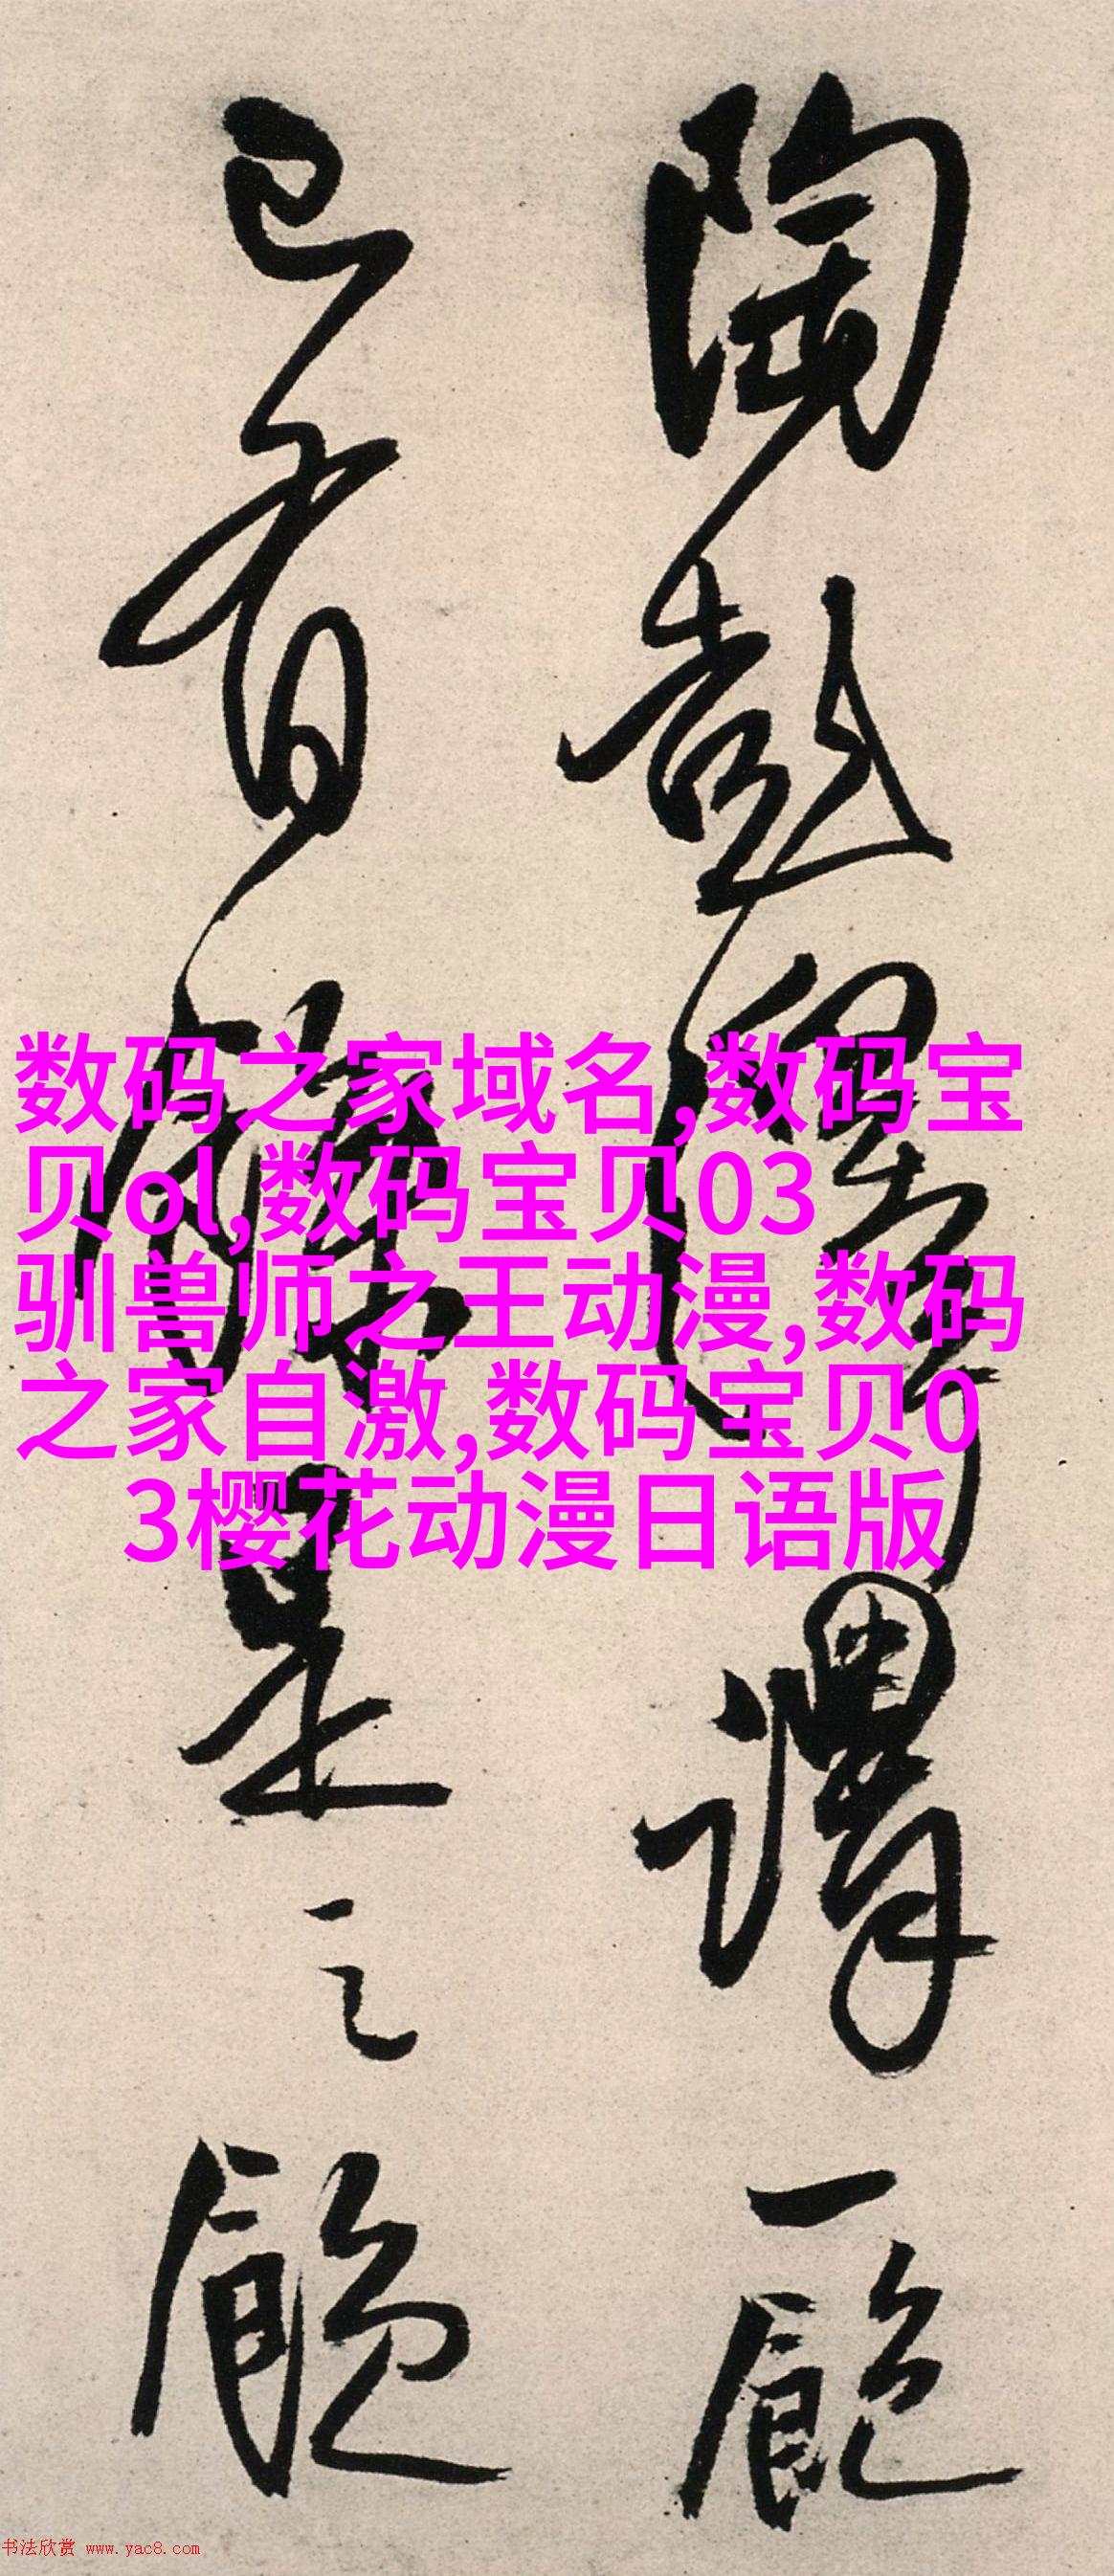 陶彭澤謂一飽
已有餘是之
数码之家域名,数码宝
贝ol,数码宝贝03
驯兽师之王动漫,数码
之家白激,数码宝贝0
3樱花动漫日语版
书法欣赏 www.yac8.com